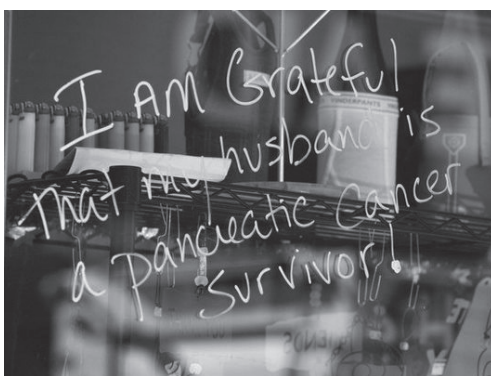 I AM Grateful
that my husband is
a Pancreatic Cancer
Survivor!
UNDERPANTS